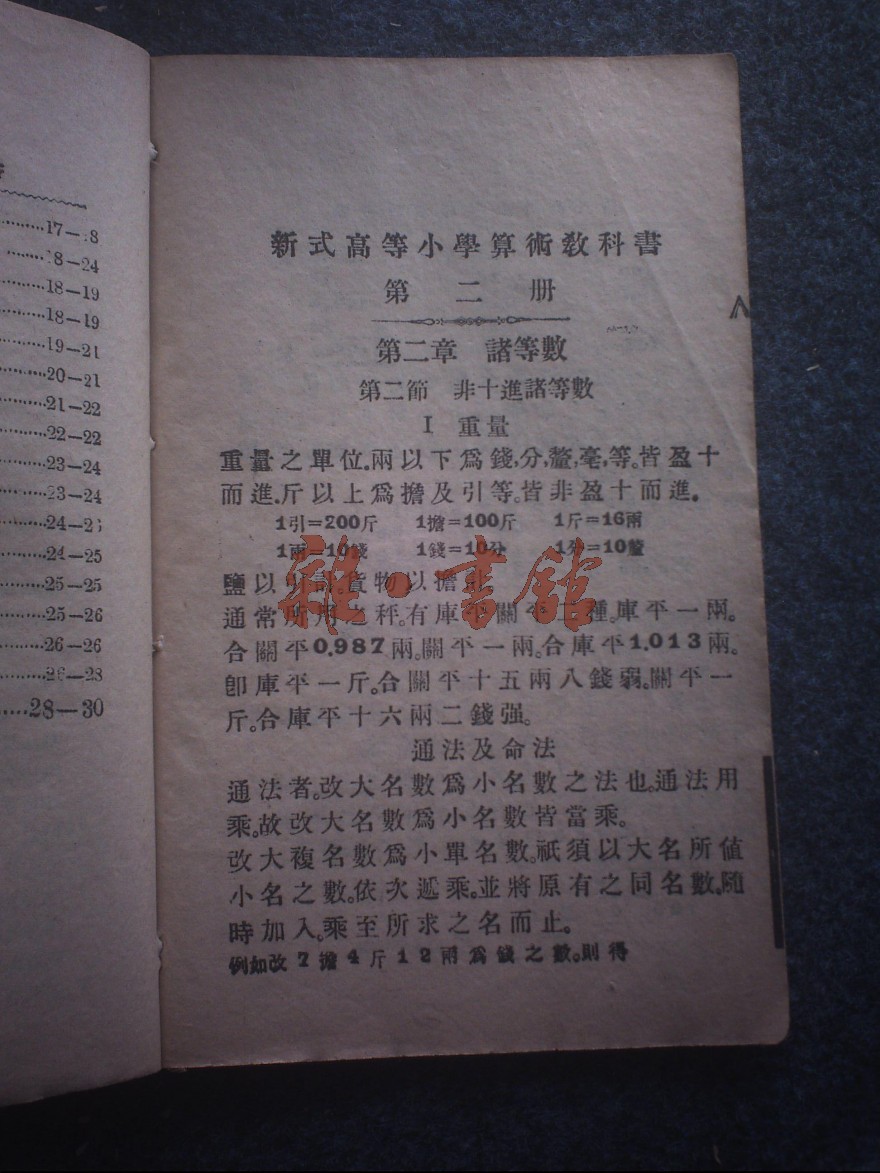 17—18
18—24
18—19
18—19
19—21
20—21
21—22
22—22
23—24
23—24
24—25
25—25
25—26
26—26
26—28
28—30
新式高等小學算術教科書
第二册
第二章 諸等數
第二節 非十進諸等數
I 重量
重量之單位.兩以下爲錢,分,釐,毫,等.皆盈十
而進.斤以上爲擔及引等.皆非盈十而進.
1引=200斤 1擔=100斤 1斤=16兩
1兩=10錢 1錢=10分 1分=10釐
鹽以引計.貨物以擔計.
通常所用之秤.有庫平關平二種.庫平一兩.
合關平0.987兩.關平一兩.合庫平1.013兩.
卽庫平一斤.合關平十五兩八錢弱.關平一
斤.合庫平十六兩二錢强.
通法及命法
通法者.改大名數爲小名數之法也.通法用
乘.故改大名數爲小名數皆當乘.
改大複名數爲小單名數.祇須以大名所値
小名之數.依次遞乘.並將原有之同名數.隨
時加入.乘至所求之名而止.
例如改7擔4斤12兩爲錢之數.則得
雜·書館